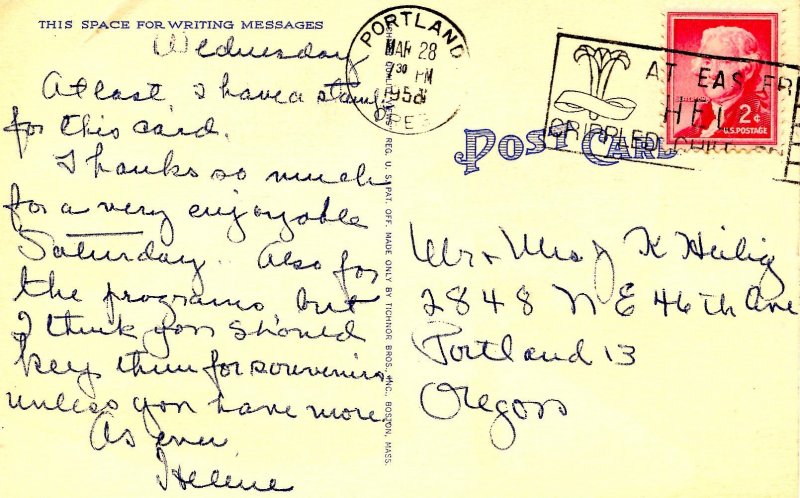 THIS SPACE FOR WRITING MESSAGES
Wednesday
At last, I have a stamp
for this card.
Thanks so much
for a very enjoyable
Saturday. Also for
the programs, but
I think you should
keep them for souvenirs
unless you have more.
As ever
Helene
REG. U. S. PAT. OFF. MADE ONLY BY TICHNOR BROS., INC., BOSTON, MASS.
PORTLAND
MAR 28
7 30 PM
195
OREG
AT EASTER
HELP
CRIPPLED CHILDREN
2¢
U.S. POSTAGE
POST CARD
Mr & Mrs J K Heilig
2848 N E 46th Ave
Portland 13
Oregon